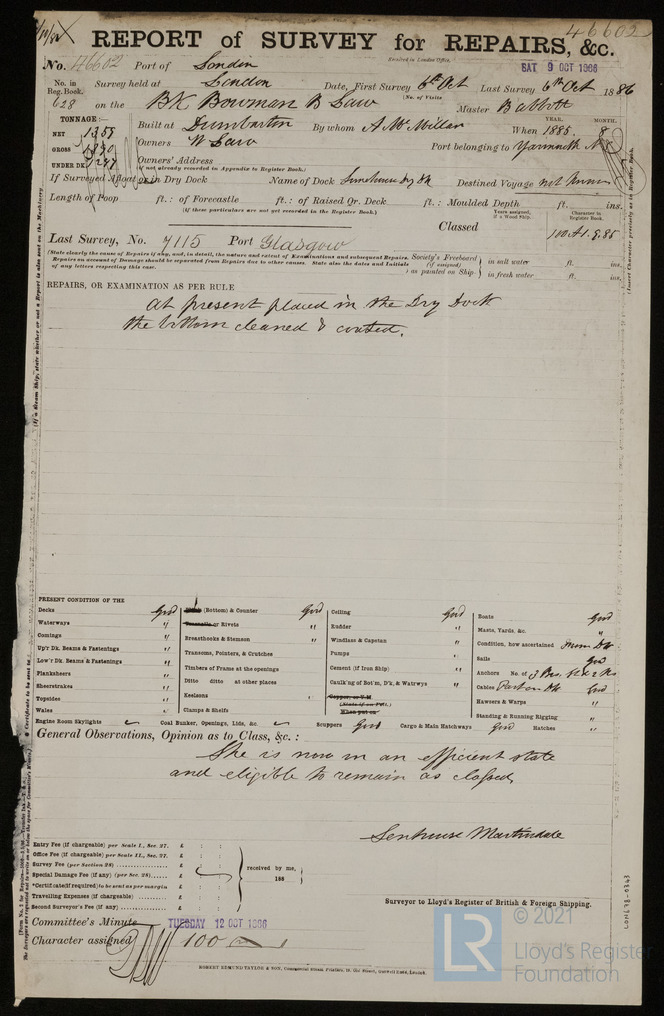 46602
REPORT of SURVEY for REPAIRS, &c.
No. 46602 Port of London
Received at London Office, SAT 9 OCT 1886
No. in Reg. Book. 628
Survey held at London Date, First Survey 6th Oct Last Survey 6th Oct 1886
(No. of Visits
on the BK Bowman B Law Master Babbott
TONNAGE:-
NET 1355
GROSS
UNDER DK.
Built at Dumbarton By whom A McMillan When 1885. 8
YEAR. MONTH.
Owners W Law Port belonging to Yarmouth N S
Owners' Address
(if not already recorded in Appendix to Register Book.)
If Surveyed Afloat or in Dry Dock Name of Dock Limehouse Dry Dk Destined Voyage not known
Length of Poop ft.: of Forecastle ft.: of Raised Qr. Deck ft.: Moulded Depth ft. ins.
(if these particulars are not yet recorded in the Register Book.)
Classed
Years assigned, if a Wood Ship.
Character in Register Book.
100 A1. 9. 85
Last Survey, No. 7115 Port Glasgow
(State clearly the cause of Repairs if any, and, in detail, the nature and extent of Examinations and subsequent Repairs.
Repairs on account of Damage should be separated from Repairs due to other causes. State also the dates and Initials of any letters respecting this case.
Society's Freeboard (if assigned) as painted on Ship
in salt water ft. ins.
in fresh water ft. ins.
REPAIRS, OR EXAMINATION AS PER RULE
At present placed in the Dry Dock
the bottom cleaned & coated.
PRESENT CONDITION OF THE
Decks Good
Waterways "
Comings "
Up'r Dk. Beams & Fastenings "
Low'r Dk. Beams & Fastenings "
Planksheers "
Sheerstrakes "
Topsides "
Wales "
Engine Room Skylights
(Bottom) & Counter Good
Treenails or Rivets "
Breasthooks & Stemson "
Transoms, Pointers, & Crutches
Timbers of Frame at the openings
Ditto ditto at other places
Keelsons
Clamps & Shelfs
Coal Bunker, Openings, Lids, &c.
Ceiling Good
Rudder "
Windlass & Capstan "
Pumps "
Cement (if Iron Ship) "
Caulk'ng of Bot'm, D'k, & Watrwys "
Copper, or Y.M.
(State if on Felt.)
When put on
Scuppers Good Cargo & Main Hatchways Good Hatches "
Boats Good
Masts, Yards, &c. "
Condition, how ascertained From Dk
Sails Good
Anchors No. of 3 Brs,
Cables Part on Dk Good
Hawsers & Warps "
Standing & Running Rigging "
General Observations, Opinion as to Class, &c.:
She is now in an efficient state
and eligible to remain as classed,
Senhouse Martindale
Surveyor to Lloyd's Register of British & Foreign Shipping.
Entry Fee (if chargeable) per Scale I., Sec. 27. £ : :
Office Fee (if chargeable) per Scale II., Sec. 27. £ : :
Survey Fee (per Section 28) £ : :
Special Damage Fee (if any) (per Sec. 28) £ : :
*Certificate (if required) to be sent as per margin
Travelling Expenses (if chargeable) £ : :
Second Surveyor's Fee (if any) £ : :
received by me,
188
Committee's Minute TUESDAY 12 OCT 1886
Character assigned 100 A 1
ROBERT EDMUND TAYLOR & SON, Commercial Steam Printers, 19, Old Street, Goswell Road, London.
LON678-0363
© 2021
LR
Lloyd's Register
Foundation